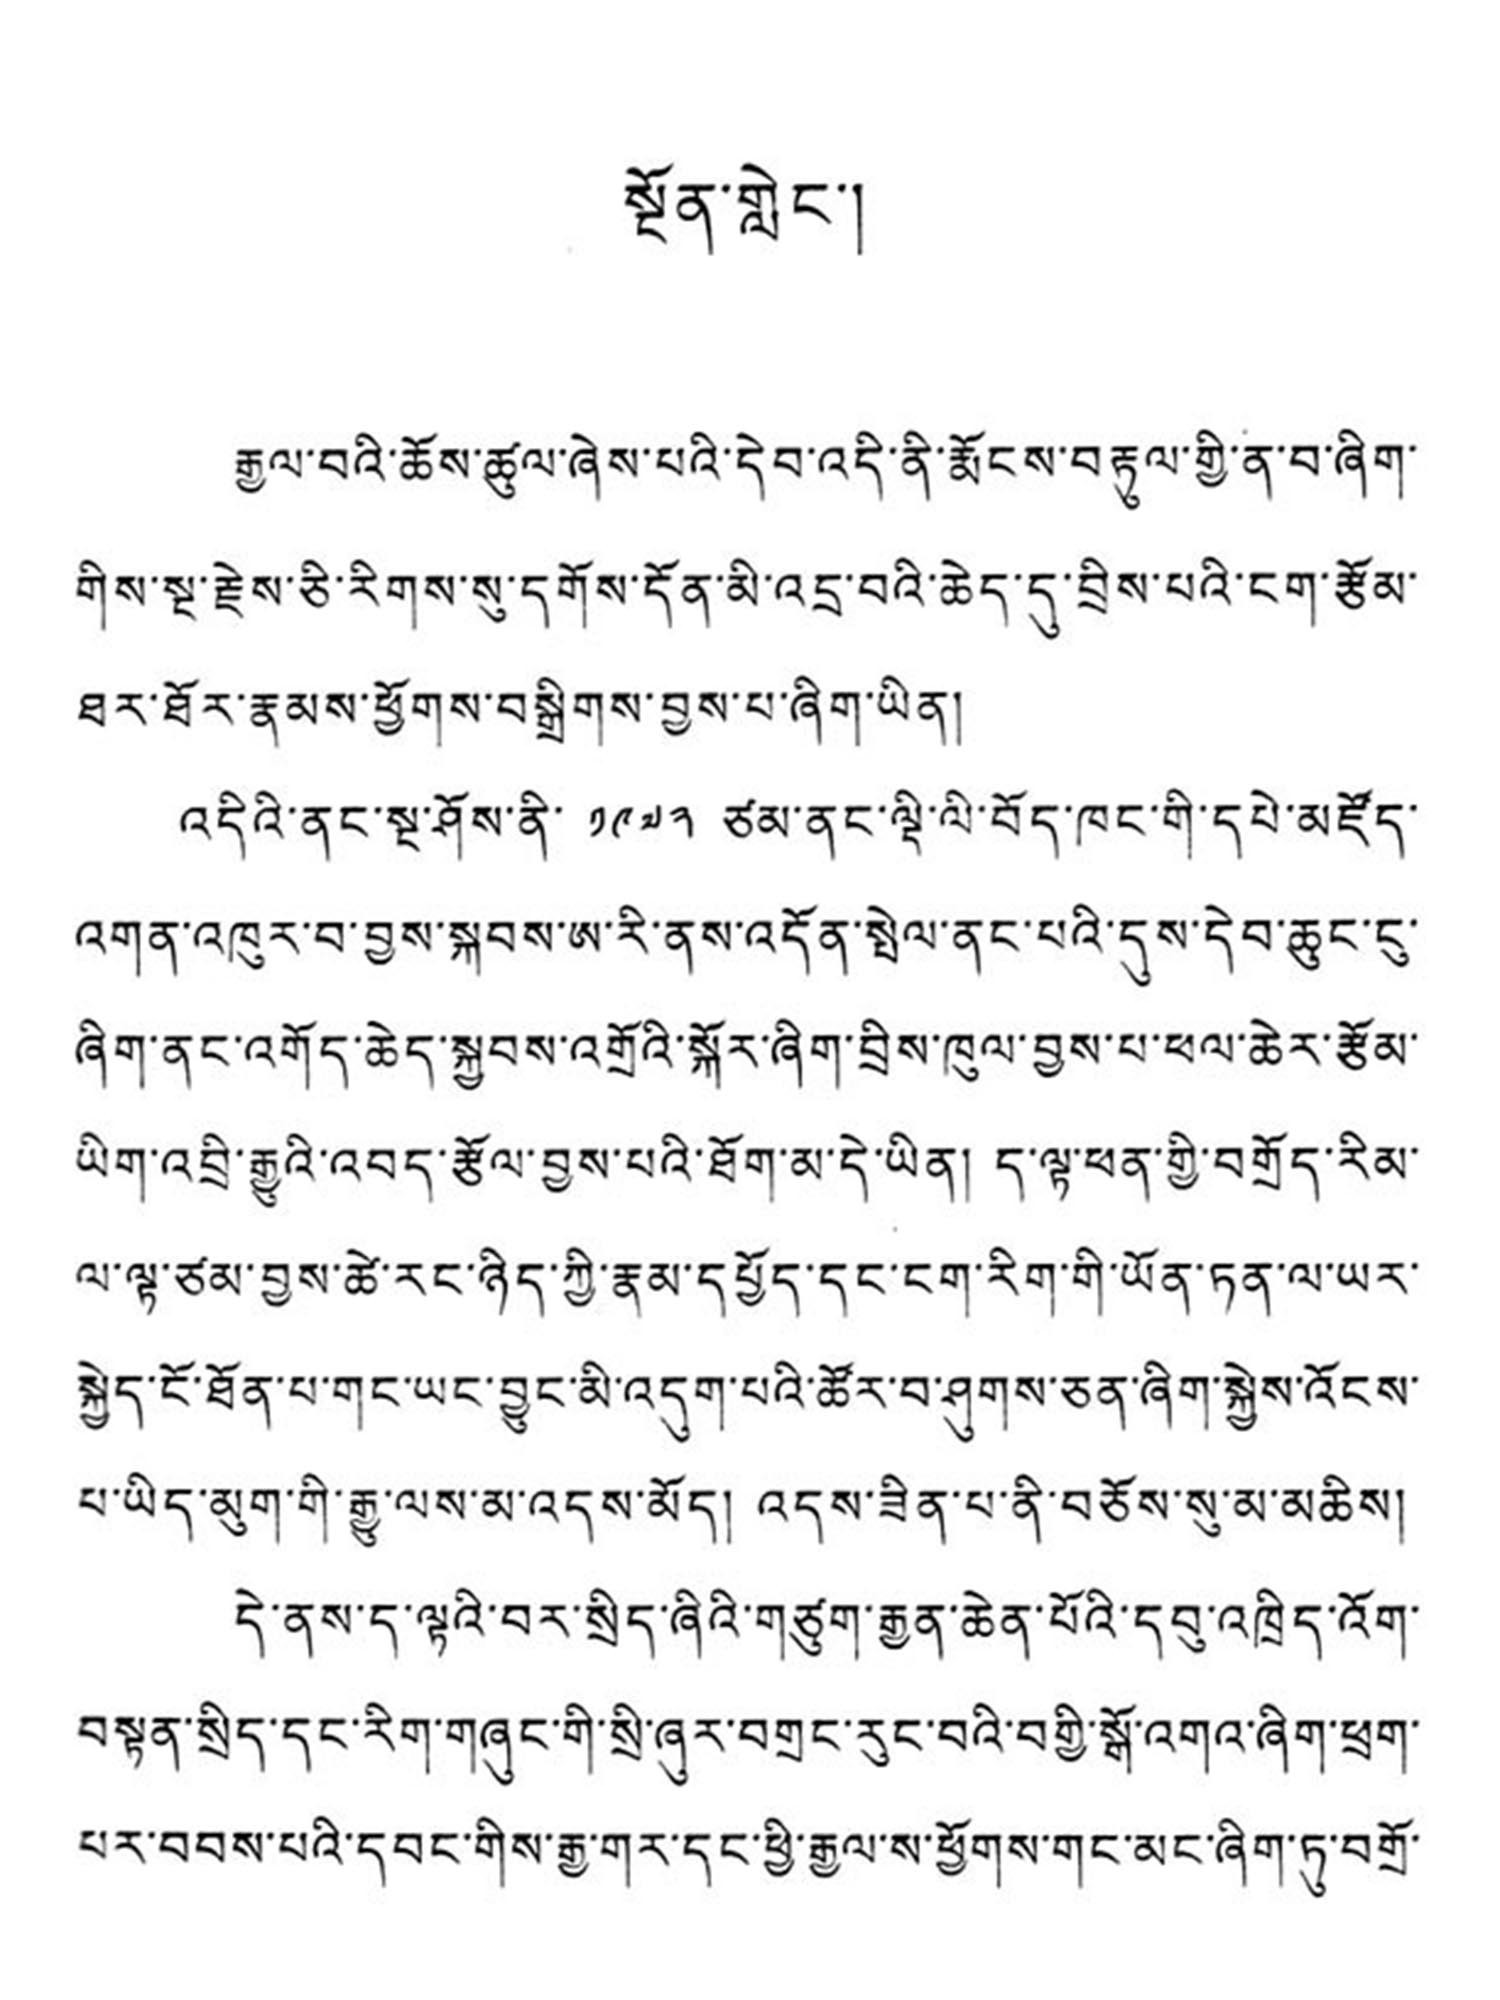 སྔོན་གླེང་།
རྒྱལ་བའི་ཆོས་ཚུལ་ཞེས་པའི་དེབ་འདི་ནི་རྨོངས་བརྟུལ་གྱི་ན་བ་ཞིག་
གིས་སྔ་རྗེས་ཅི་རིགས་སུ་དགོས་དོན་མི་འདྲ་བའི་ཆེད་དུ་བྲིས་པའི་ངག་རྩོམ་
ཐར་ཐོར་རྣམས་ཕྱོགས་བསྒྲིགས་བྱས་པ་ཞིག་ཡིན།
འདིའི་ནང་སྔ་ཤོས་ནི་ ༡༩༧༢ ཙམ་ནང་ལྡི་ལི་བོད་ཁང་གི་དཔེ་མཛོད་
འགན་འཁུར་བ་བྱས་སྐབས་ཨ་རི་ནས་འདོན་སྤེལ་ནང་པའི་དུས་དེབ་ཆུང་ངུ་
ཞིག་ནང་འགོད་ཆེད་སྐྱབས་འགྲོའི་སྐོར་ཞིག་བྲིས་ཁུལ་བྱས་པ་ཕལ་ཆེར་རྩོམ་
ཡིག་འབྲི་རྒྱུའི་འབད་རྩོལ་བྱས་པའི་ཐོག་མ་དེ་ཡིན། ད་ལྟ་ཕན་གྱི་བགྲོད་རིམ་
ལ་ལྟ་ཙམ་བྱས་ཚེ་རང་ཉིད་ཀྱི་རྣམ་དཔྱོད་དང་ངག་རིག་གི་ཡོན་ཏན་ལ་ཡར་
སྐྱེད་ངོ་ཐོན་པ་གང་ཡང་བྱུང་མི་འདུག་པའི་ཚོར་བ་ཤུགས་ཅན་ཞིག་སྐྱེས་འོངས་
པ་ཡིད་མུག་གི་རྒྱུ་ལས་མ་འདས་མོད། འདས་ཟིན་པ་ནི་བཅོས་སུ་མ་མཆིས།
དེ་ནས་ད་ལྟའི་བར་སྲིད་ཞིའི་གཙུག་རྒྱན་ཆེན་པོའི་དབུ་འཁྲིད་འོག་
བསྟན་སྲིད་དང་རིག་གཞུང་གི་སྲི་ཞུར་བགྲང་རུང་བའི་བགྱི་སྒོ་འགའ་ཞིག་ཕྲག་
པར་བབས་པའི་དབང་གིས་རྒྱ་གར་དང་ཕྱི་རྒྱལ་ས་ཕྱོགས་གང་མང་ཞིག་ཏུ་བགྲོ་